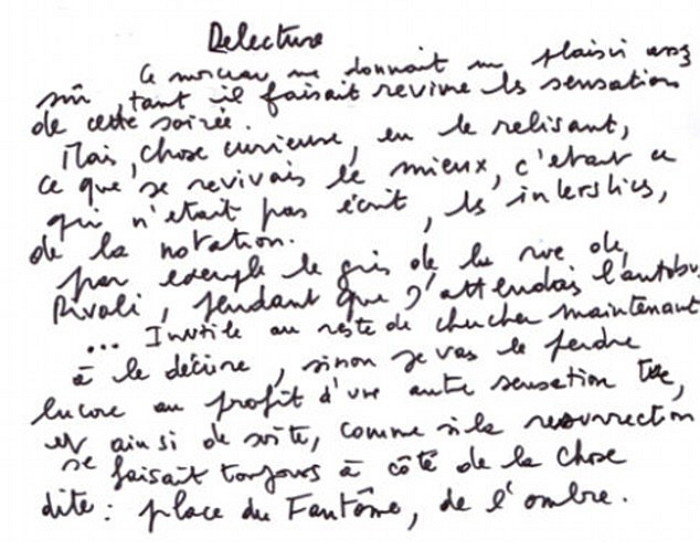 Relecture
Ce morceau me donnait un plaisir assez
sûr, tant il faisait revivre les sensations
de cette soirée.
Mais, chose curieuse, en le relisant,
ce que je revivais le mieux, c'était ce
qui n'était pas écrit, les interstices,
de la notation.
par exemple le gris de la rue de
Rivoli, pendant que j'attendais l'autobus
... Inutile au reste de chercher maintenant
à le décrire, sinon je vais le perdre
encore au profit d'une autre sensation tue,
et ainsi de suite, comme si la resurrection
se faisait toujours à côté de la chose
dite : place du Fantôme, de l'ombre.